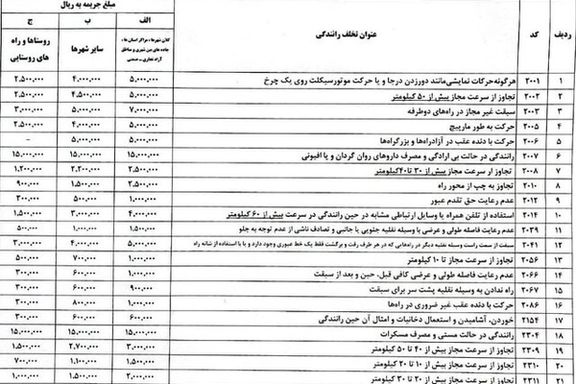 ردیف کد عنوان تخلف رانندگی مبلغ جریمه به ریال
الف ب ج
کلان شهرها، مراکز استان ها، جاده های بین شهری و مناطق آزاد تجاری - صنعتی سایر شهرها روستاها و راه های روستایی
۱ ۲۰۰۱ هرگونه حرکات نمایشی مانند دورزدن درجا و یا حرکت موتورسیکلت روی یک چرخ ۵,۰۰۰,۰۰۰ ۴,۰۰۰,۰۰۰ ۲,۵۰۰,۰۰۰
۲ ۲۰۰۲ تجاوز از سرعت مجاز بیش از ۵۰ کیلومتر ۵,۰۰۰,۰۰۰ ۴,۵۰۰,۰۰۰ ۲,۵۰۰,۰۰۰
۳ ۲۰۰۳ سبقت غیر مجاز در راه‌های دوطرفه ۷,۰۰۰,۰۰۰ ۵,۰۰۰,۰۰۰ ۳,۰۰۰,۰۰۰
۴ ۲۰۰۵ حرکت به طور مارپیچ ۵,۰۰۰,۰۰۰ ۴,۰۰۰,۰۰۰ ۲,۵۰۰,۰۰۰
۵ ۲۰۰۶ حرکت با دنده عقب در آزادراه‌ها و بزرگراه‌ها ۵,۰۰۰,۰۰۰ - -
۶ ۲۰۰۷ رانندگی در حالت بی ارادگی و مصرف داروهای روان گردان و یا افیونی ۱۵,۰۰۰,۰۰۰ ۱۵,۰۰۰,۰۰۰ ۱۵,۰۰۰,۰۰۰
۷ ۲۰۰۸ تجاوز از سرعت مجاز بیش از ۳۰ تا ۴۰ کیلومتر ۲,۵۰۰,۰۰۰ ۲,۲۰۰,۰۰۰ ۱,۲۰۰,۰۰۰
۸ ۲۰۱۰ تجاوز به چپ از محور راه ۲,۵۰۰,۰۰۰ ۱,۵۰۰,۰۰۰ ۹۰۰,۰۰۰
۹ ۲۰۱۲ عدم رعایت حق تقدم عبور ۱,۰۰۰,۰۰۰ ۵۰۰,۰۰۰ ۳۰۰,۰۰۰
۱۰ ۲۰۱۴ استفاده از تلفن همراه یا وسایل ارتباطی مشابه در حین رانندگی در سرعت بیش از ۶۰ کیلومتر ۴,۰۰۰,۰۰۰ ۳,۰۰۰,۰۰۰ ۱,۵۰۰,۰۰۰
۱۱ ۲۰۳۹ عدم رعایت فاصله طولی و عرضی با وسیله نقلیه جلویی یا جانبی و تصادف ناشی از عدم توجه به جلو ۱,۵۰۰,۰۰۰ ۱,۰۰۰,۰۰۰ ۵۰۰,۰۰۰
۱۲ ۲۰۴۱ سبقت از سمت راست وسیله نقلیه دیگر در راه‌هایی که در هر طرف رفت و برگشت فقط یک خط عبوری وجود دارد و یا با استفاده از شانه راه ۵,۰۰۰,۰۰۰ ۴,۰۰۰,۰۰۰ ۳,۰۰۰,۰۰۰
۱۳ ۲۰۵۶ تجاوز از سرعت مجاز تا ۱۰ کیلومتر ۱,۰۰۰,۰۰۰ ۷۰۰,۰۰۰ ۵۰۰,۰۰۰
۱۴ ۲۰۶۶ عدم رعایت فاصله طولی و عرضی کافی قبل، حین و بعد از سبقت ۱,۰۰۰,۰۰۰ ۶۰۰,۰۰۰ ۳۰۰,۰۰۰
۱۵ ۲۰۶۷ راه ندادن به وسیله نقلیه پشت سر برای سبقت ۹۰۰,۰۰۰ ۶۰۰,۰۰۰ ۳۰۰,۰۰۰
۱۶ ۲۰۸۶ حرکت با دنده عقب غیر ضروری در راه‌ها ۱,۰۰۰,۰۰۰ ۸۰۰,۰۰۰ ۳۰۰,۰۰۰
۱۷ ۲۱۵۴ خوردن، آشامیدن و استعمال دخانیات و امثال آن حین رانندگی ۶۰۰,۰۰۰ ۶۰۰,۰۰۰ ۳۰۰,۰۰۰
۱۸ ۲۳۰۴ رانندگی در حالت مستی و مصرف مسکرات ۱۵,۰۰۰,۰۰۰ ۱۵,۰۰۰,۰۰۰ ۱۵,۰۰۰,۰۰۰
۱۹ ۲۳۰۹ تجاوز از سرعت مجاز بیش از ۴۰ تا ۵۰ کیلومتر ۳,۰۰۰,۰۰۰ ۲,۷۰۰,۰۰۰ ۱,۵۰۰,۰۰۰
۲۰ ۲۳۱۰ تجاوز از سرعت مجاز بیش از ۱۰ تا ۲۰ کیلومتر ۱,۵۰۰,۰۰۰ ۱,۱۰۰,۰۰۰ ۷۰۰,۰۰۰
۲۱ ۲۳۱۱ تجاوز از سرعت مجاز بیش از ۲۰ تا ۳۰ کیلومتر ۲,۰۰۰,۰۰۰ ۱,۵۰۰,۰۰۰ ۱,۰۰۰,۰۰۰